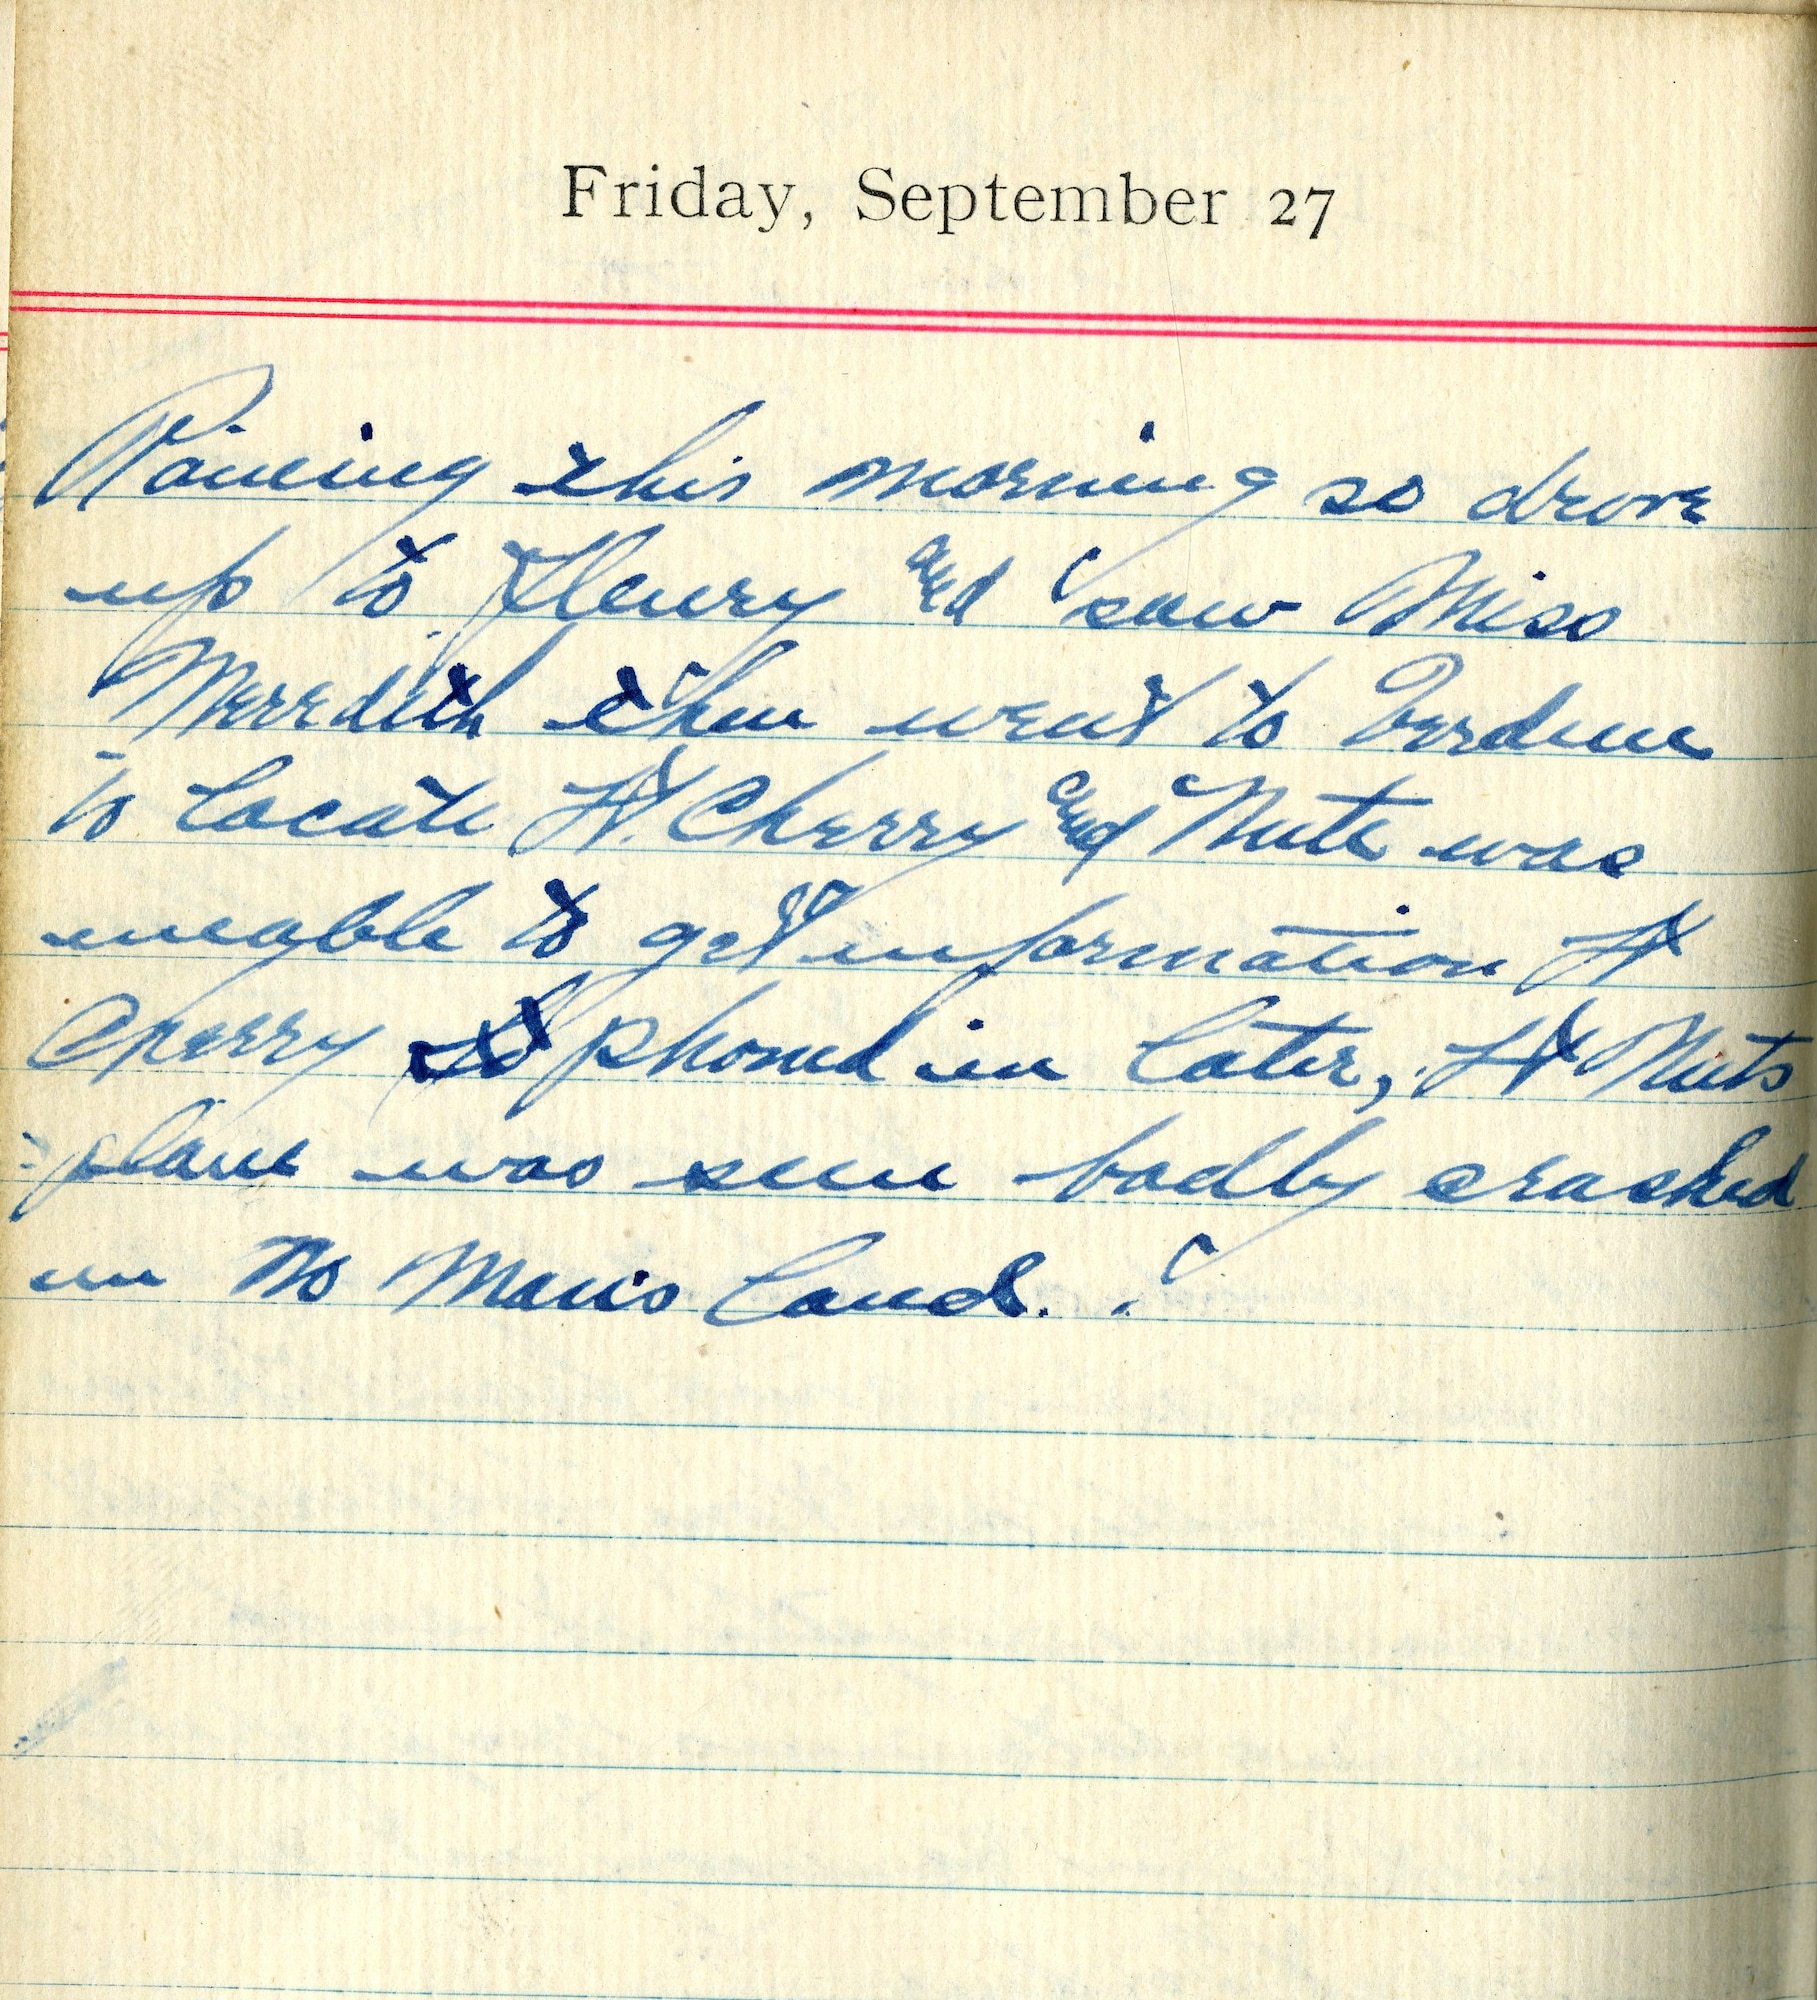 Friday, September 27
Raining this morning so drove
up to Fleury and saw Miss
Meredith then went to Verdun
to locate Lt. Cherry and Nutt was
unable to get information Lt
Cherry phoned in later, Lt Nutts
plane was seen badly crashed
in No Mans Land.